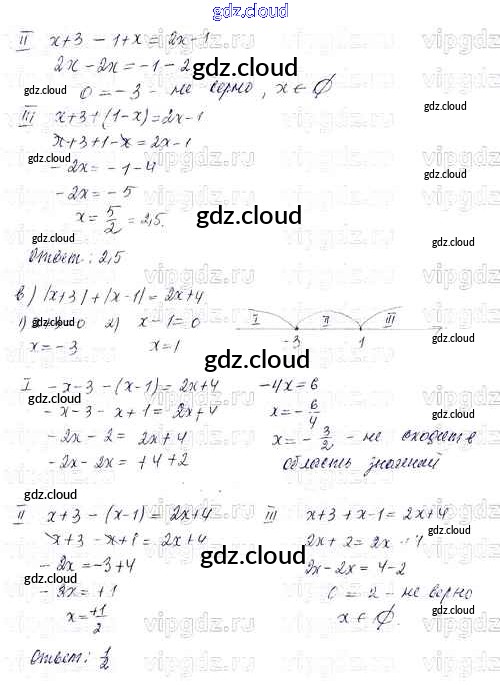 gdz.cloud
II x+3 - 1+x = 2x-1
2x - 2x = -1 - 2
0 = -3 - не верно, x ∈ ∅
III x+3+(1-x)=2x-1
x+3+1-x = 2x-1
- 2x = -1-4
- 2x = - 5
x = 5/2 = 2,5.
Ответ: 2,5
в) |x+3|+|x-1| = 2x+4
1) x+3=0 2) x-1=0
x = -3 x=1
I II III
-3 1
I -x-3 -(x-1) = 2x+4
-x-3-x+1 = 2x+4
-2x-2 = 2x+4
-2x-2x = +4+2
-4x=6
x = - 6/4
x = - 3/2 - не входит в
область значений
II x+3 - (x-1) = 2x+4
x+3 -x+1 = 2x+4
- 2x = -3+4
- 2x = +1
x = +1/2
Ответ: 1/2
III x+3 + x-1 = 2x+4
2x+2 = 2x+4
2x-2x = 4-2
0 = 2 - не верно
x ∈ ∅.
gdz.cloud
gdz.cloud
gdz.cloud
gdz.cloud
gdz.cloud
gdz.cloud
vipgdz.ru